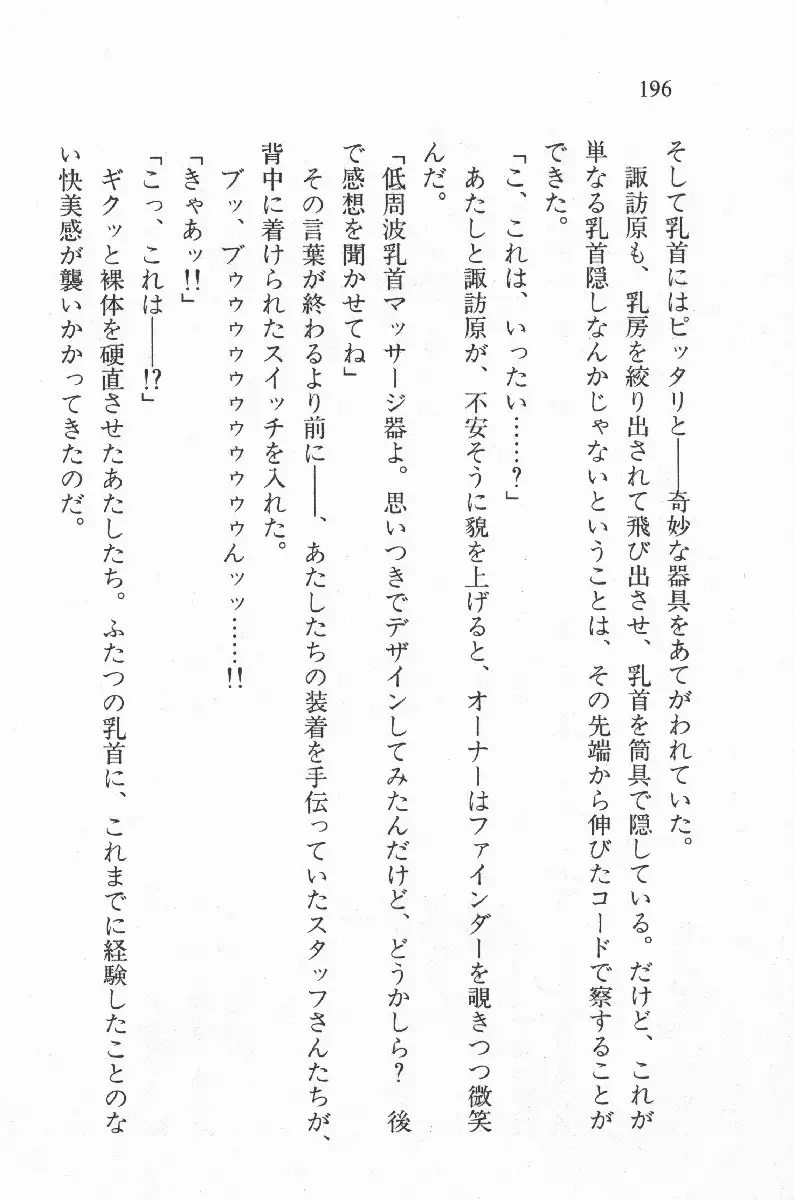 196
そして乳首にはピッタリと――奇妙な器具をあてがわれていた。
諏訪原も、乳房を絞り出されて飛び出させ、乳首を筒具で隠している。だけど、これが
単なる乳首隠しなんかじゃないということは、その先端から伸びたコードで察することが
できた。
「こ、これは、いったい……？」
あたしと諏訪原が、不安そうに貌を上げると、オーナーはファインダーを覗きつつ微笑
んだ。
「低周波乳首マッサージ器よ。思いつきでデザインしてみたんだけど、どうかしら？　後
で感想を聞かせてね」
その言葉が終わるより前に――、あたしたちの装着を手伝っていたスタッフさんたちが、
背中に着けられたスイッチを入れた。
ブッ、ブゥゥゥゥゥゥゥゥゥんッッ……!!
「きゃあッ!!」
「こっ、これは――!?」
ギクッと裸体を硬直させたあたしたち。ふたつの乳首に、これまでに経験したことのな
い快美感が襲いかかってきたのだ。